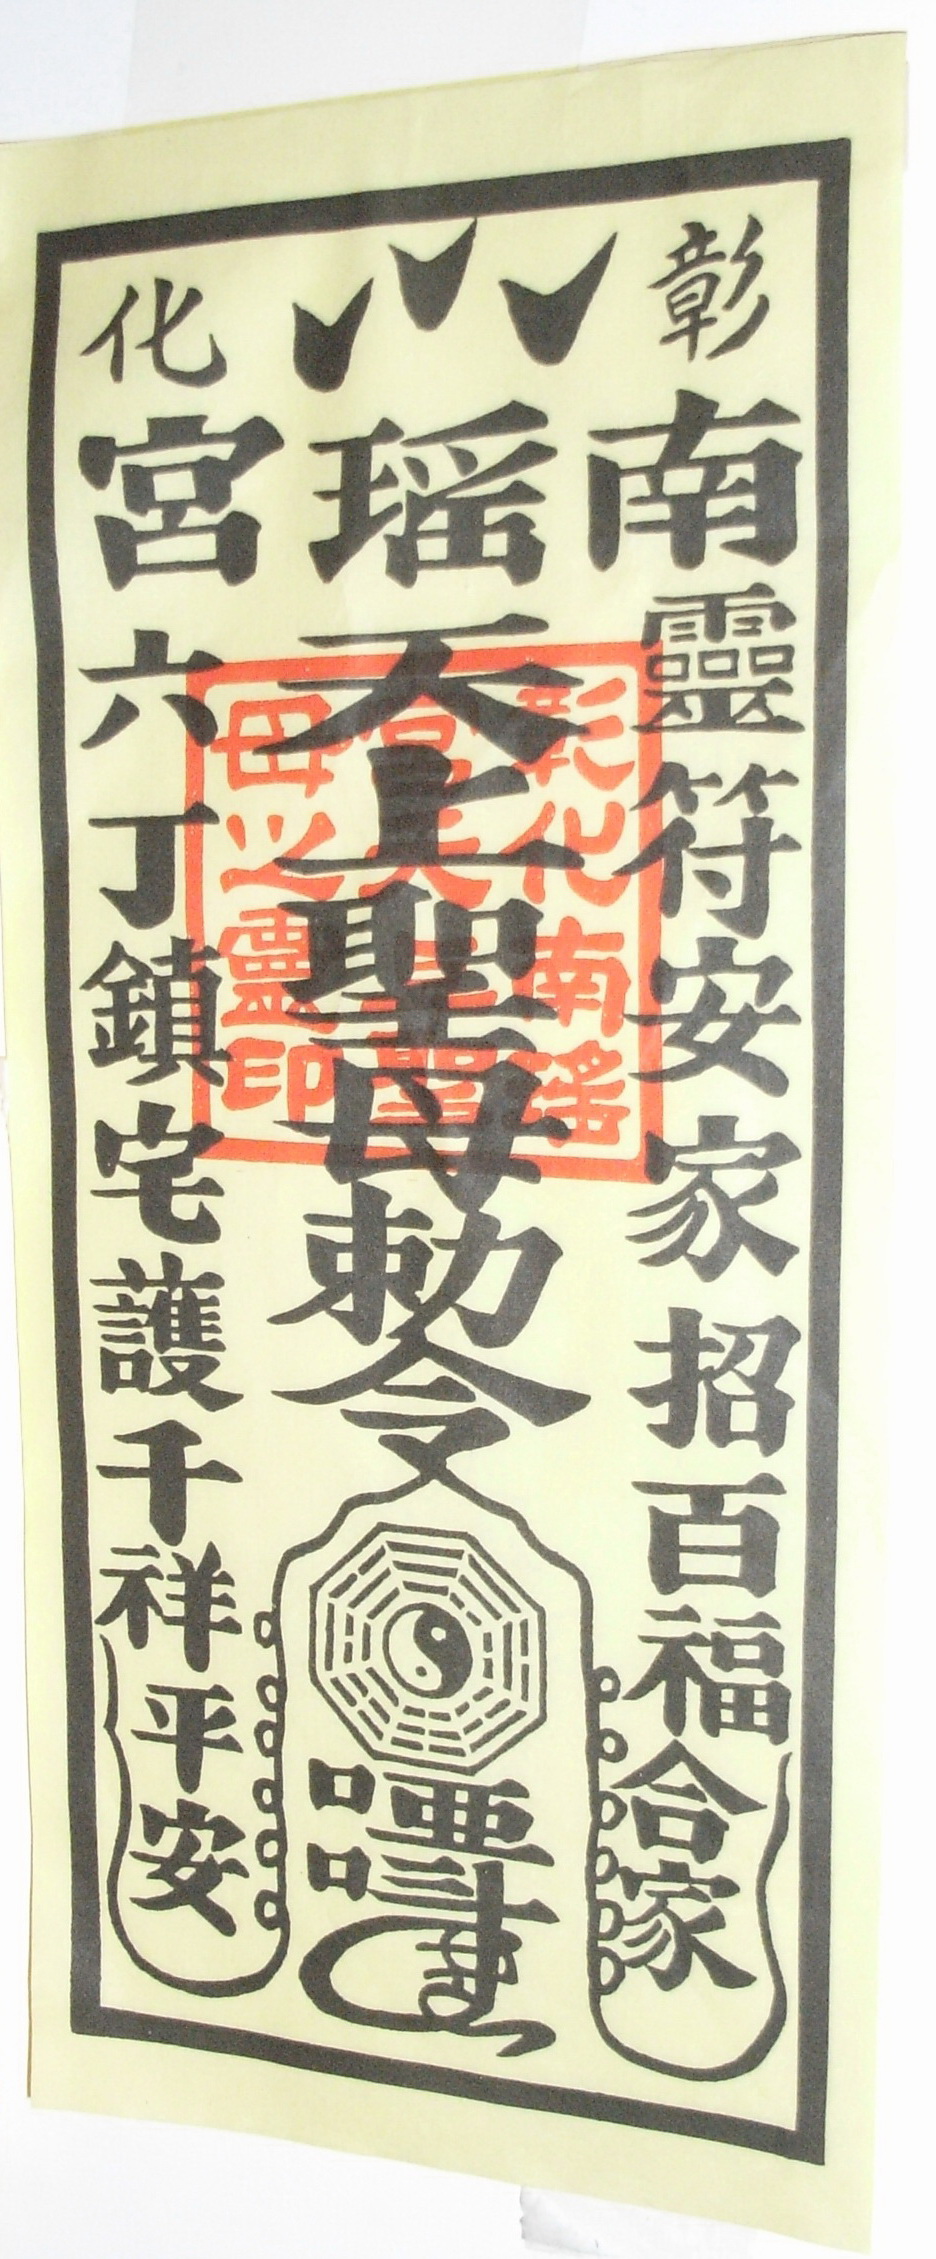 彰化
南瑤宮
靈符安家招百福合家
天上聖母勅令
六丁鎮宅護千祥平安
彰化南瑤
宮天上聖
母之靈印